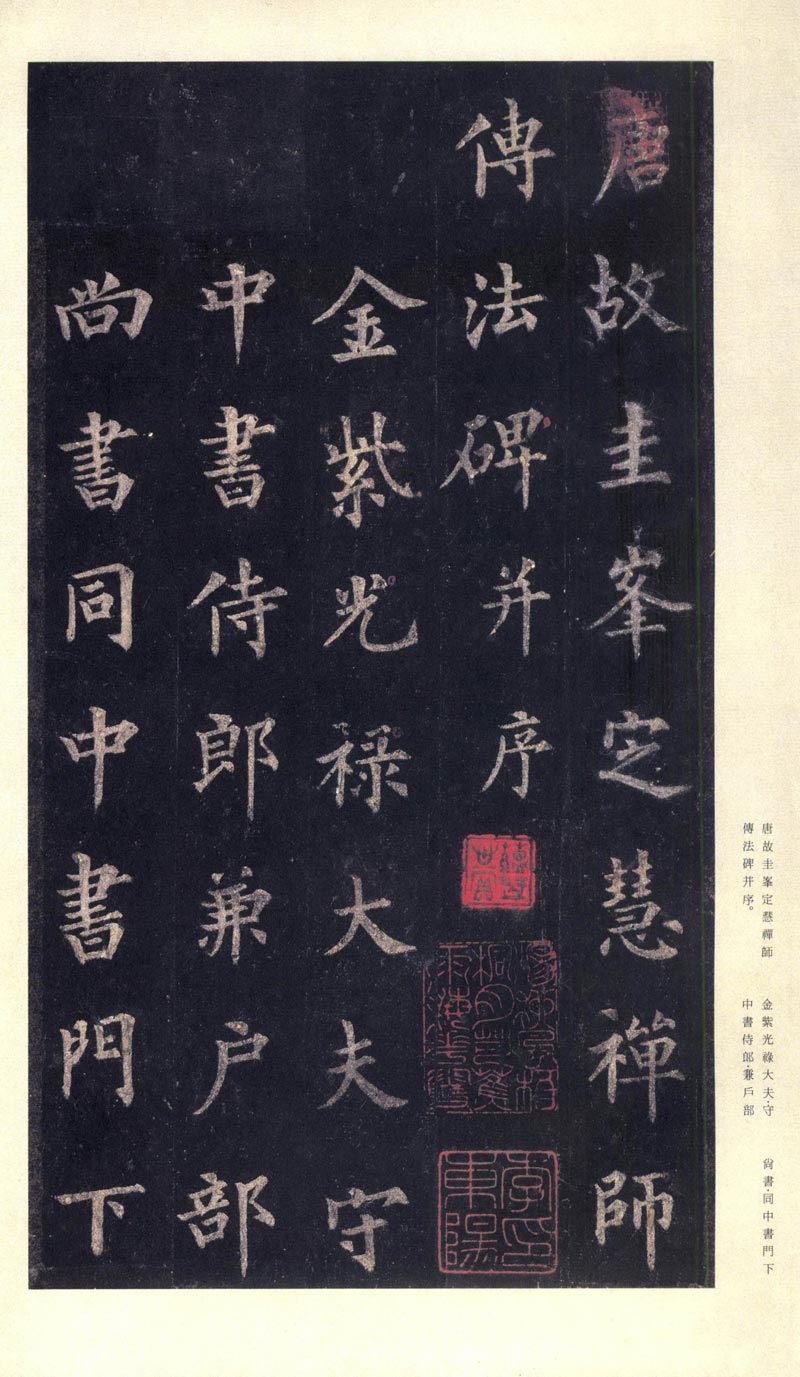 唐故圭峯定慧禪師
傳法碑并序
金紫光祿大夫守
中書侍郎兼户部
尚書同中書門下
唐故圭峯定慧禪師
傳法碑并序。
金紫光祿大夫·守
中書侍郎·兼戶部
尙書·同中書門下